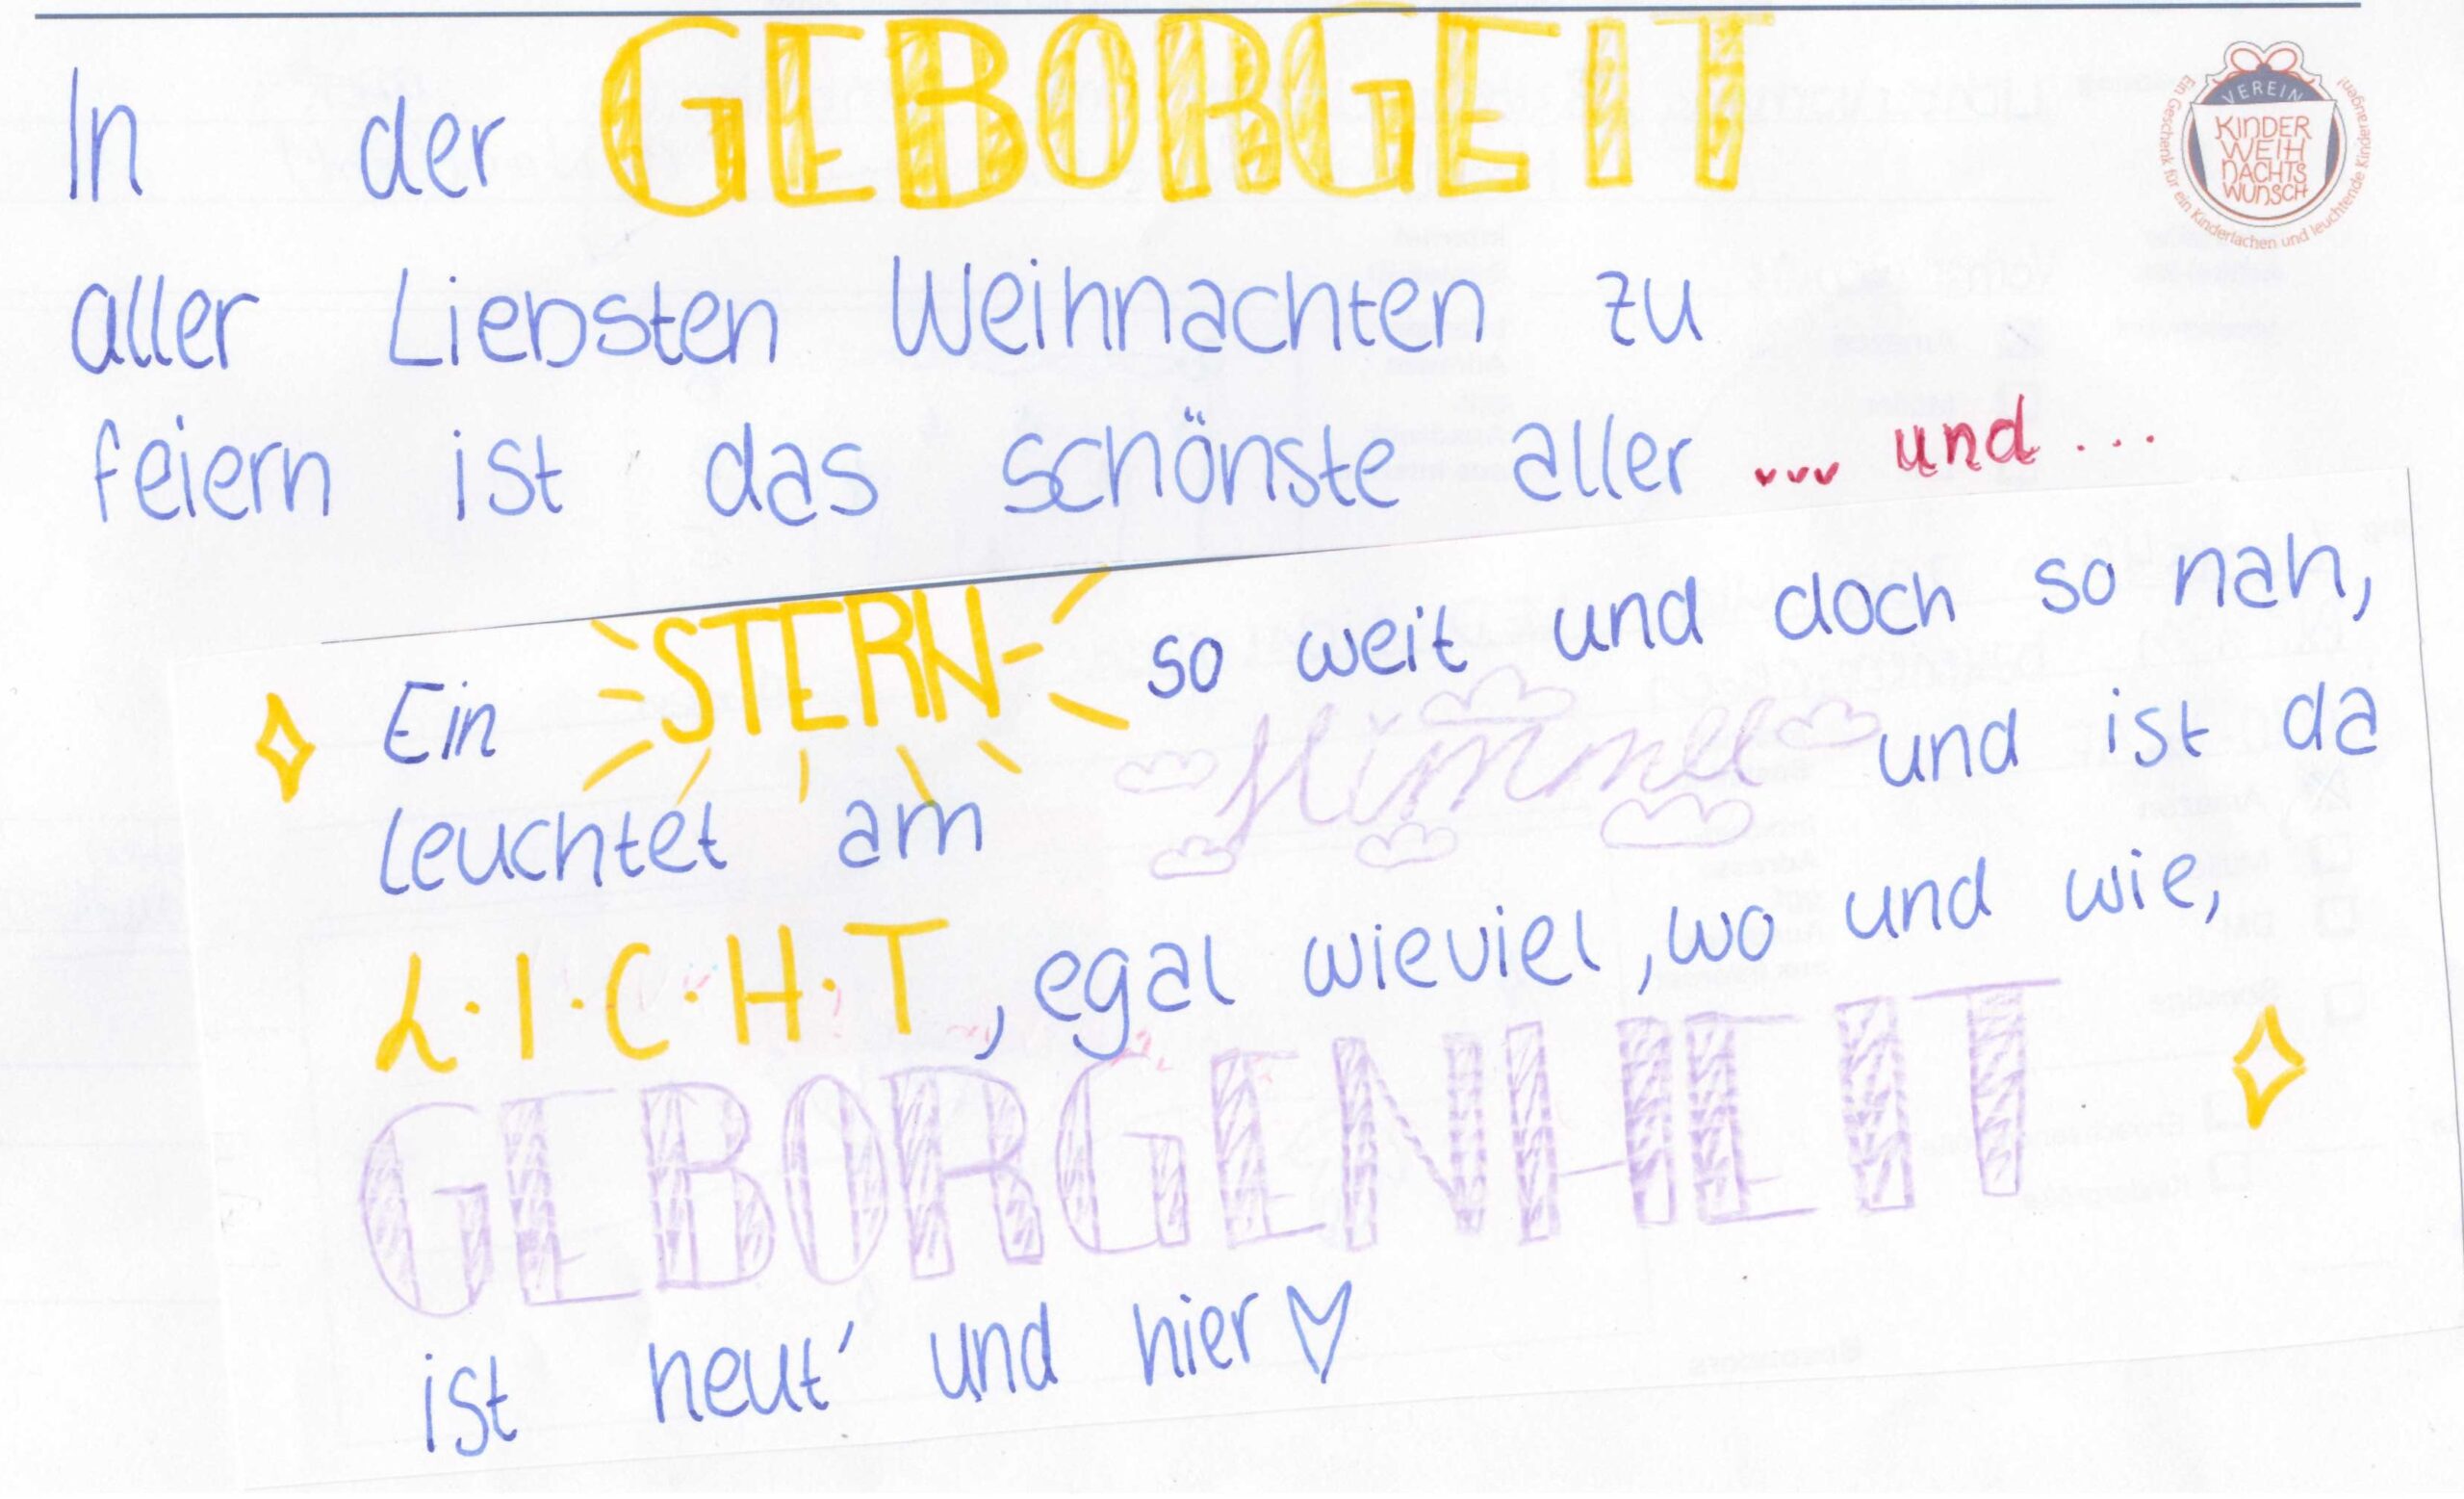 In der GEBORGEIT
VEREIN
KINDER
WEIH
NACHTS
WUNSCH
Ein Geschenk für ein Kinderlachen und leuchtende Kinderaugen!
aller Liebsten Weihnachten zu
feiern ist das schönste aller ... und ...
Ein STERN so weit und doch so nah,
leuchtet am Himmel und ist da
L·I·C·H·T, egal wieviel, wo und wie,
GEBORGENHEIT
ist heut' und hier